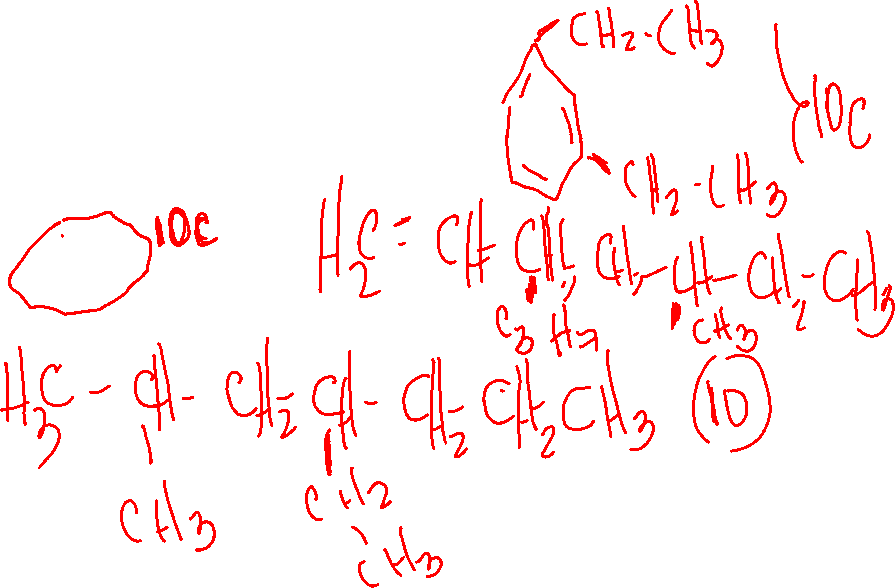 CH2-CH3
10C
CH2-CH3
10C
H2C=CH CH2 CH2-CH-CH2-CH3
C3H7 CH3
H3C-CH-CH2 CH-CH2 CH2 CH3 10
CH3 CH2
CH3